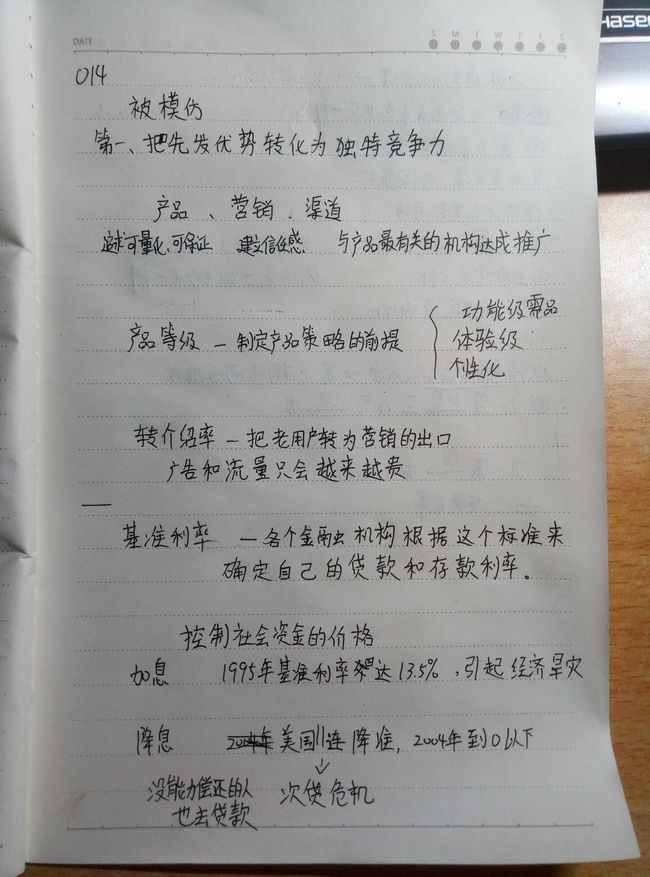 DATE
S M T W T F S
Hasee
014
被模仿
第一、把先发优势转化为独特竞争力
产品、营销、渠道
可量化,可保证 建立信任感 与产品最有关的机构达成推广
产品等级 — 制定产品策略的前提
功能级需品
体验级
个性化
转介绍率 — 把老用户转为营销的出口
广告和流量只会越来越贵
基准利率 — 各个金融机构根据这个标准来
确定自己的贷款和存款利率。
控制社会资金的价格
加息 1995年基准利率 达13.5%,引起经济旱灾
降息 美国11连降准,2004年到0以下
↓
没能力偿还的人 次贷危机
也去贷款